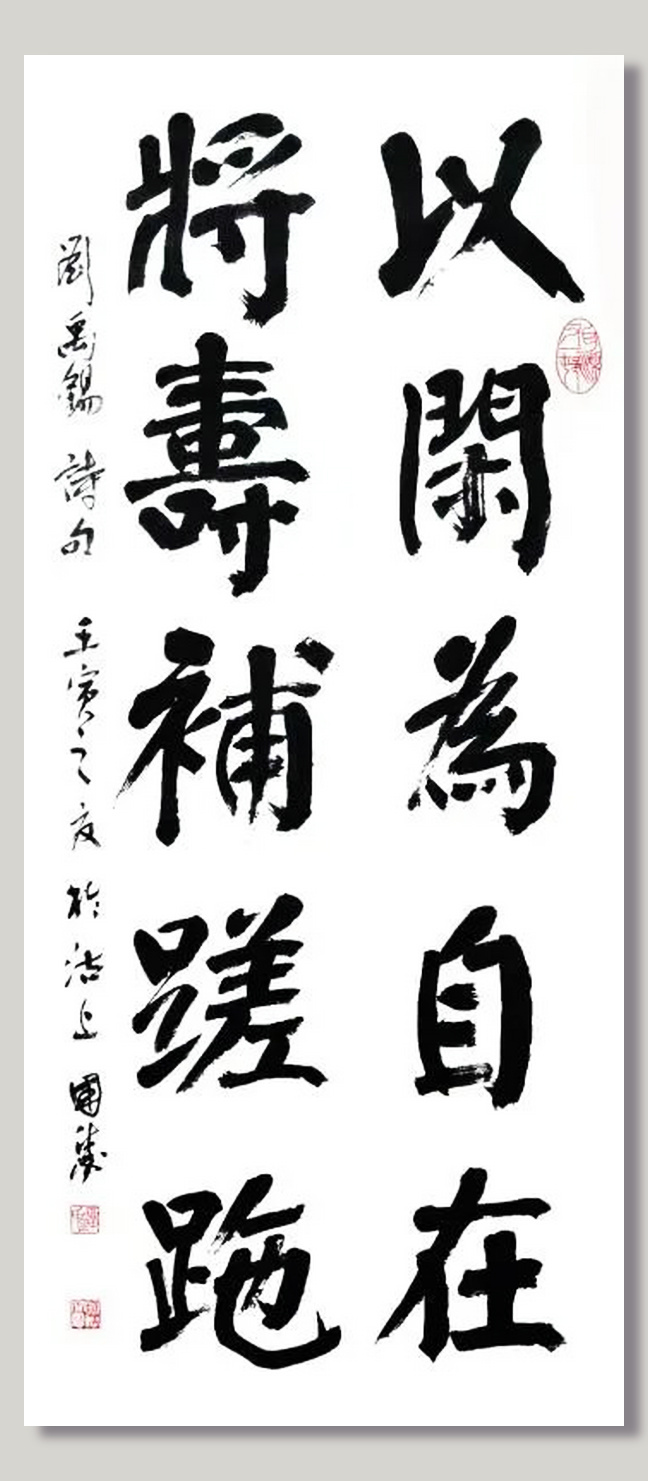 以閑為自在
將壽補蹉跎
劉禹錫 詩句 壬寅之夏 於沽上 國勝